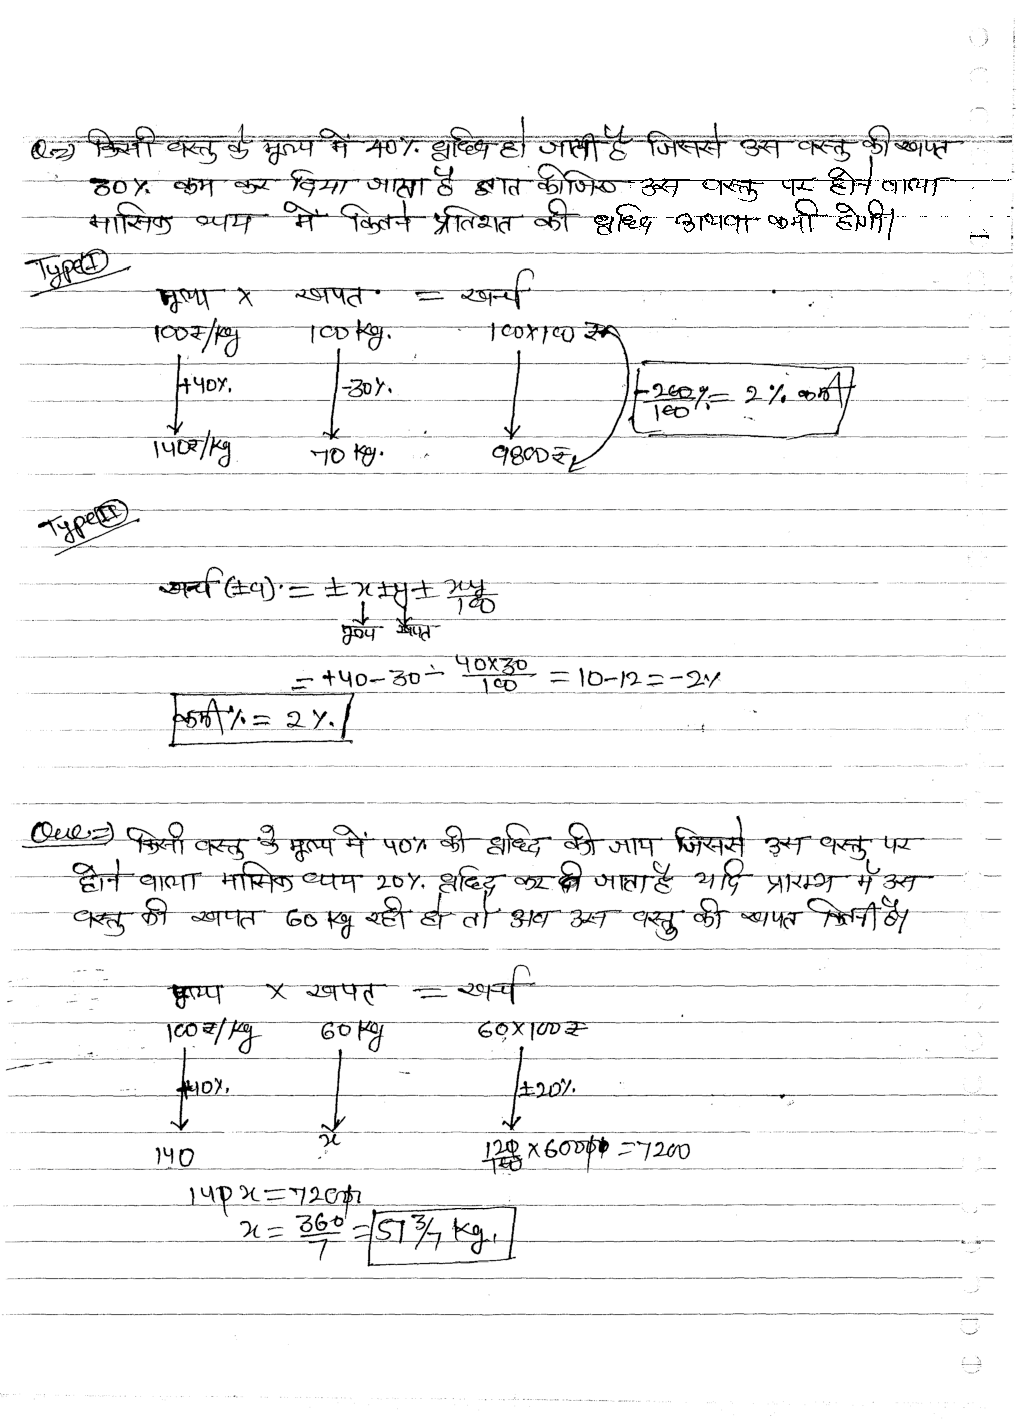 Q.⇒ किसी वस्तु के मूल्य में 40% वृद्धि हो जाती है जिससे उस वस्तु की खपत
30% कम कर दिया जाता है ज्ञात कीजिए उस वस्तु पर होने वाला
मासिक व्यय में कितने प्रतिशत की वृद्धि अथवा कमी होगी।
Type I
मूल्य × खपत = खर्च
100₹/kg 100 kg. 100×100 ₹
+40% -30%
-200/100 % = 2% कमी
140₹/kg 70 kg. 9800 ₹
Type II
खर्च (±a) = ± x ± y ± xy/100
मूल्य खपत
= +40 - 30 - 40×30/100 = 10-12 = -2%
कमी % = 2%.
Que ⇒ किसी वस्तु के मूल्य में 40% की वृद्धि की जाय जिससे उस वस्तु पर
होने वाला मासिक व्यय 20% वृद्धि कर दी जाता है यदि प्रारम्भ में उस
वस्तु की खपत 60 kg रही हो तो अब उस वस्तु की खपत कितनी है।
मूल्य × खपत = खर्च
100₹/kg 60 kg 60×100 ₹
+40% ±20%
140 x 120/100 × 6000 = 7200
140 x = 7200
x = 360/7 = 51 3/7 kg.